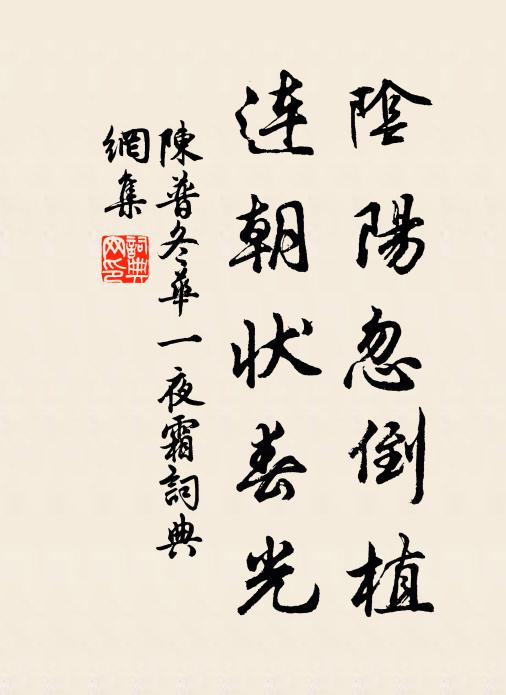 陰陽忽倒植
连朝状春光
陳普冬華一夜霜詞典
網集
詞典網印